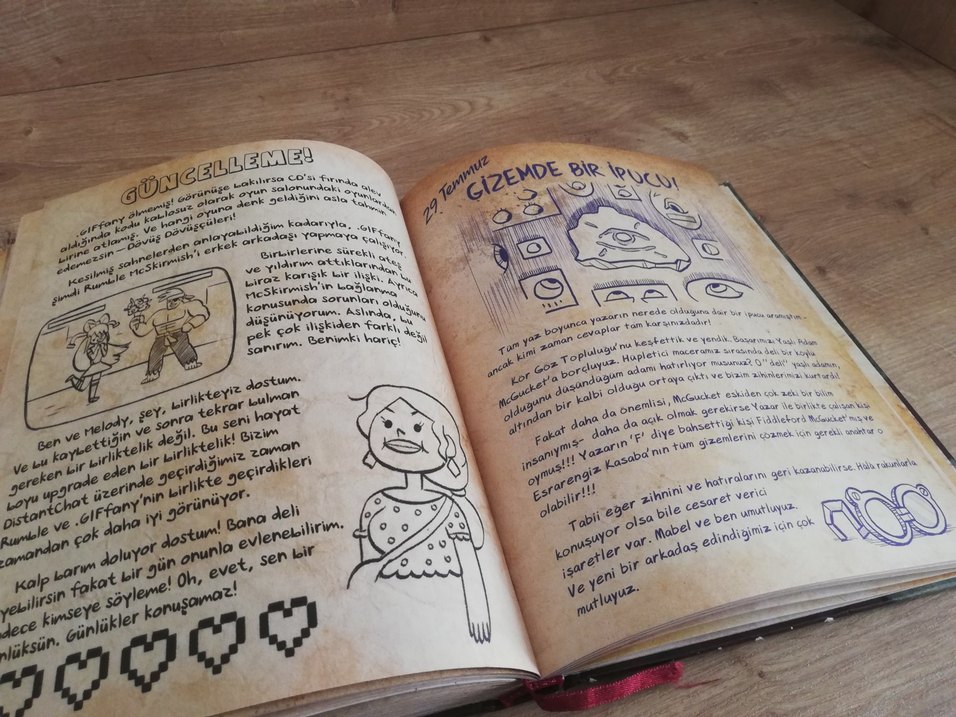 GÜNCELLEME!
.GIFfany ölmemiş! Görünüşe bakılırsa CD'si fırında alev
aldığında kodu kablosuz olarak oyun salonundaki oyunlardan
birine atlamış. Ve hangi oyuna denk geldiğini asla tahmin
edemezsin — Dövüş Dövüşçüleri!
Kesilmiş sahnelerden anlayabildiğim kadarıyla, .GIFfany
şimdi Rumble McSkirmish'i erkek arkadaşı yapmaya çalışıyor.
Birbirlerine sürekli ateş
ve yıldırım attıklarından bu
biraz karışık bir ilişki. Ayrıca
McSkirmish'in bağlanma
konusunda sorunları olduğunu
düşünüyorum. Aslında, bu
pek çok ilişkiden farklı değil
sanırım. Benimki hariç!
Ben ve Melody, şey, birlikteyiz dostum.
Ve bu kaybettiğin ve sonra tekrar bulman
gereken bir birliktelik değil. Bu seni hayat
boyu upgrade eden bir birliktelik! Bizim
DistantChat üzerinde geçirdiğimiz zaman
Rumble ve .GIFfany'nin birlikte geçirdikleri
zamandan çok daha iyi görünüyor.
Kalp barım doluyor dostum! Bana deli
yebilirsin fakat bir gün onunla evlenebilirim.
adece kimseye söyleme! Oh, evet, sen bir
nlüksün. Günlükler konuşamaz!
29 Temmuz
GİZEMDE BİR İPUCU!
Tüm yaz boyunca yazarın nerede olduğuna dair bir ipucu aramıştım -
ancak kimi zaman cevaplar tam karşınızdadır!
Kör Göz Topluluğu'nu keşfettik ve yendik. Başarımızı Yaşlı Adam
McGucket'a borçluyuz. Hüpletici maceramız sırasında deli bir köylü
olduğunu düşündüğüm adamı hatırlıyor musunuz? O "deli" yaşlı adamın,
altından bir kalbi olduğu ortaya çıktı ve bizim zihinlerimizi kurtardı!
Fakat daha da önemlisi, McGucket eskiden çok zeki bir bilim
insanıymış- daha da açık olmak gerekirse Yazar ile birlikte çalışan kişi
oymuş!!! Yazarın 'F' diye bahsettiği kişi Fiddleford McGucket'mış ve
Esrarengiz Kasaba'nın tüm gizemlerini çözmek için gerekli anahtar o
olabilir!!!
Tabii eğer zihnini ve hatıralarını geri kazanabilirse. Hâlâ rakunlarla
konuşuyor olsa bile cesaret verici
işaretler var. Mabel ve ben umutluyuz.
Ve yeni bir arkadaş edindiğimiz için çok
mutluyuz.